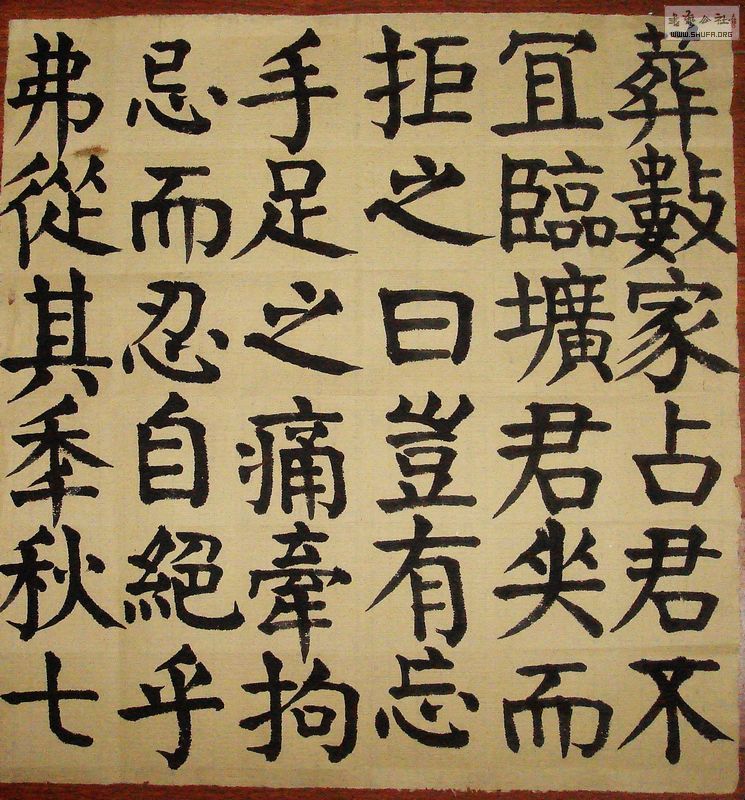 葬數家占君不
冝臨壙君哭而
拒之曰豈有忘
手足之痛牽拘
忌而忍自絶乎
弗從其秊秋七
WWW.SHUFA.ORG